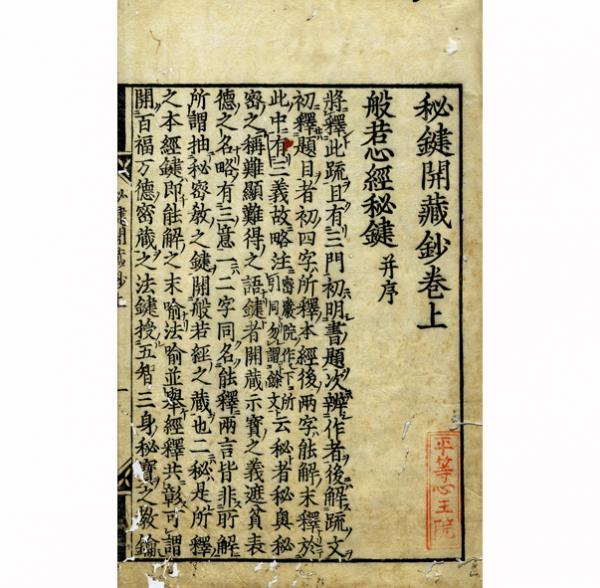 秘鍵開藏鈔卷上
般若心經秘鍵 并序
將釋此疏且有三門初明書題次辨作者後解疏文
初釋題目者初四字所釋本經後兩字能解末釋於
此中有三義故略注密嚴院作下所引同勿謂餘文云秘者秘奧秘
密之稱難顯難得之語鍵者開藏示寶之義遮貧表
德之名略有三意一二字同名能釋兩言皆非所解
所謂抽秘密教之鍵開般若經之藏也二秘是所釋
之本經鍵即能解之末喻法喻並舉經釋共彰可謂
開百福万德密藏之法鍵授五智三身秘寶之教鑰
秘鍵開藏鈔上
一
平等心王院